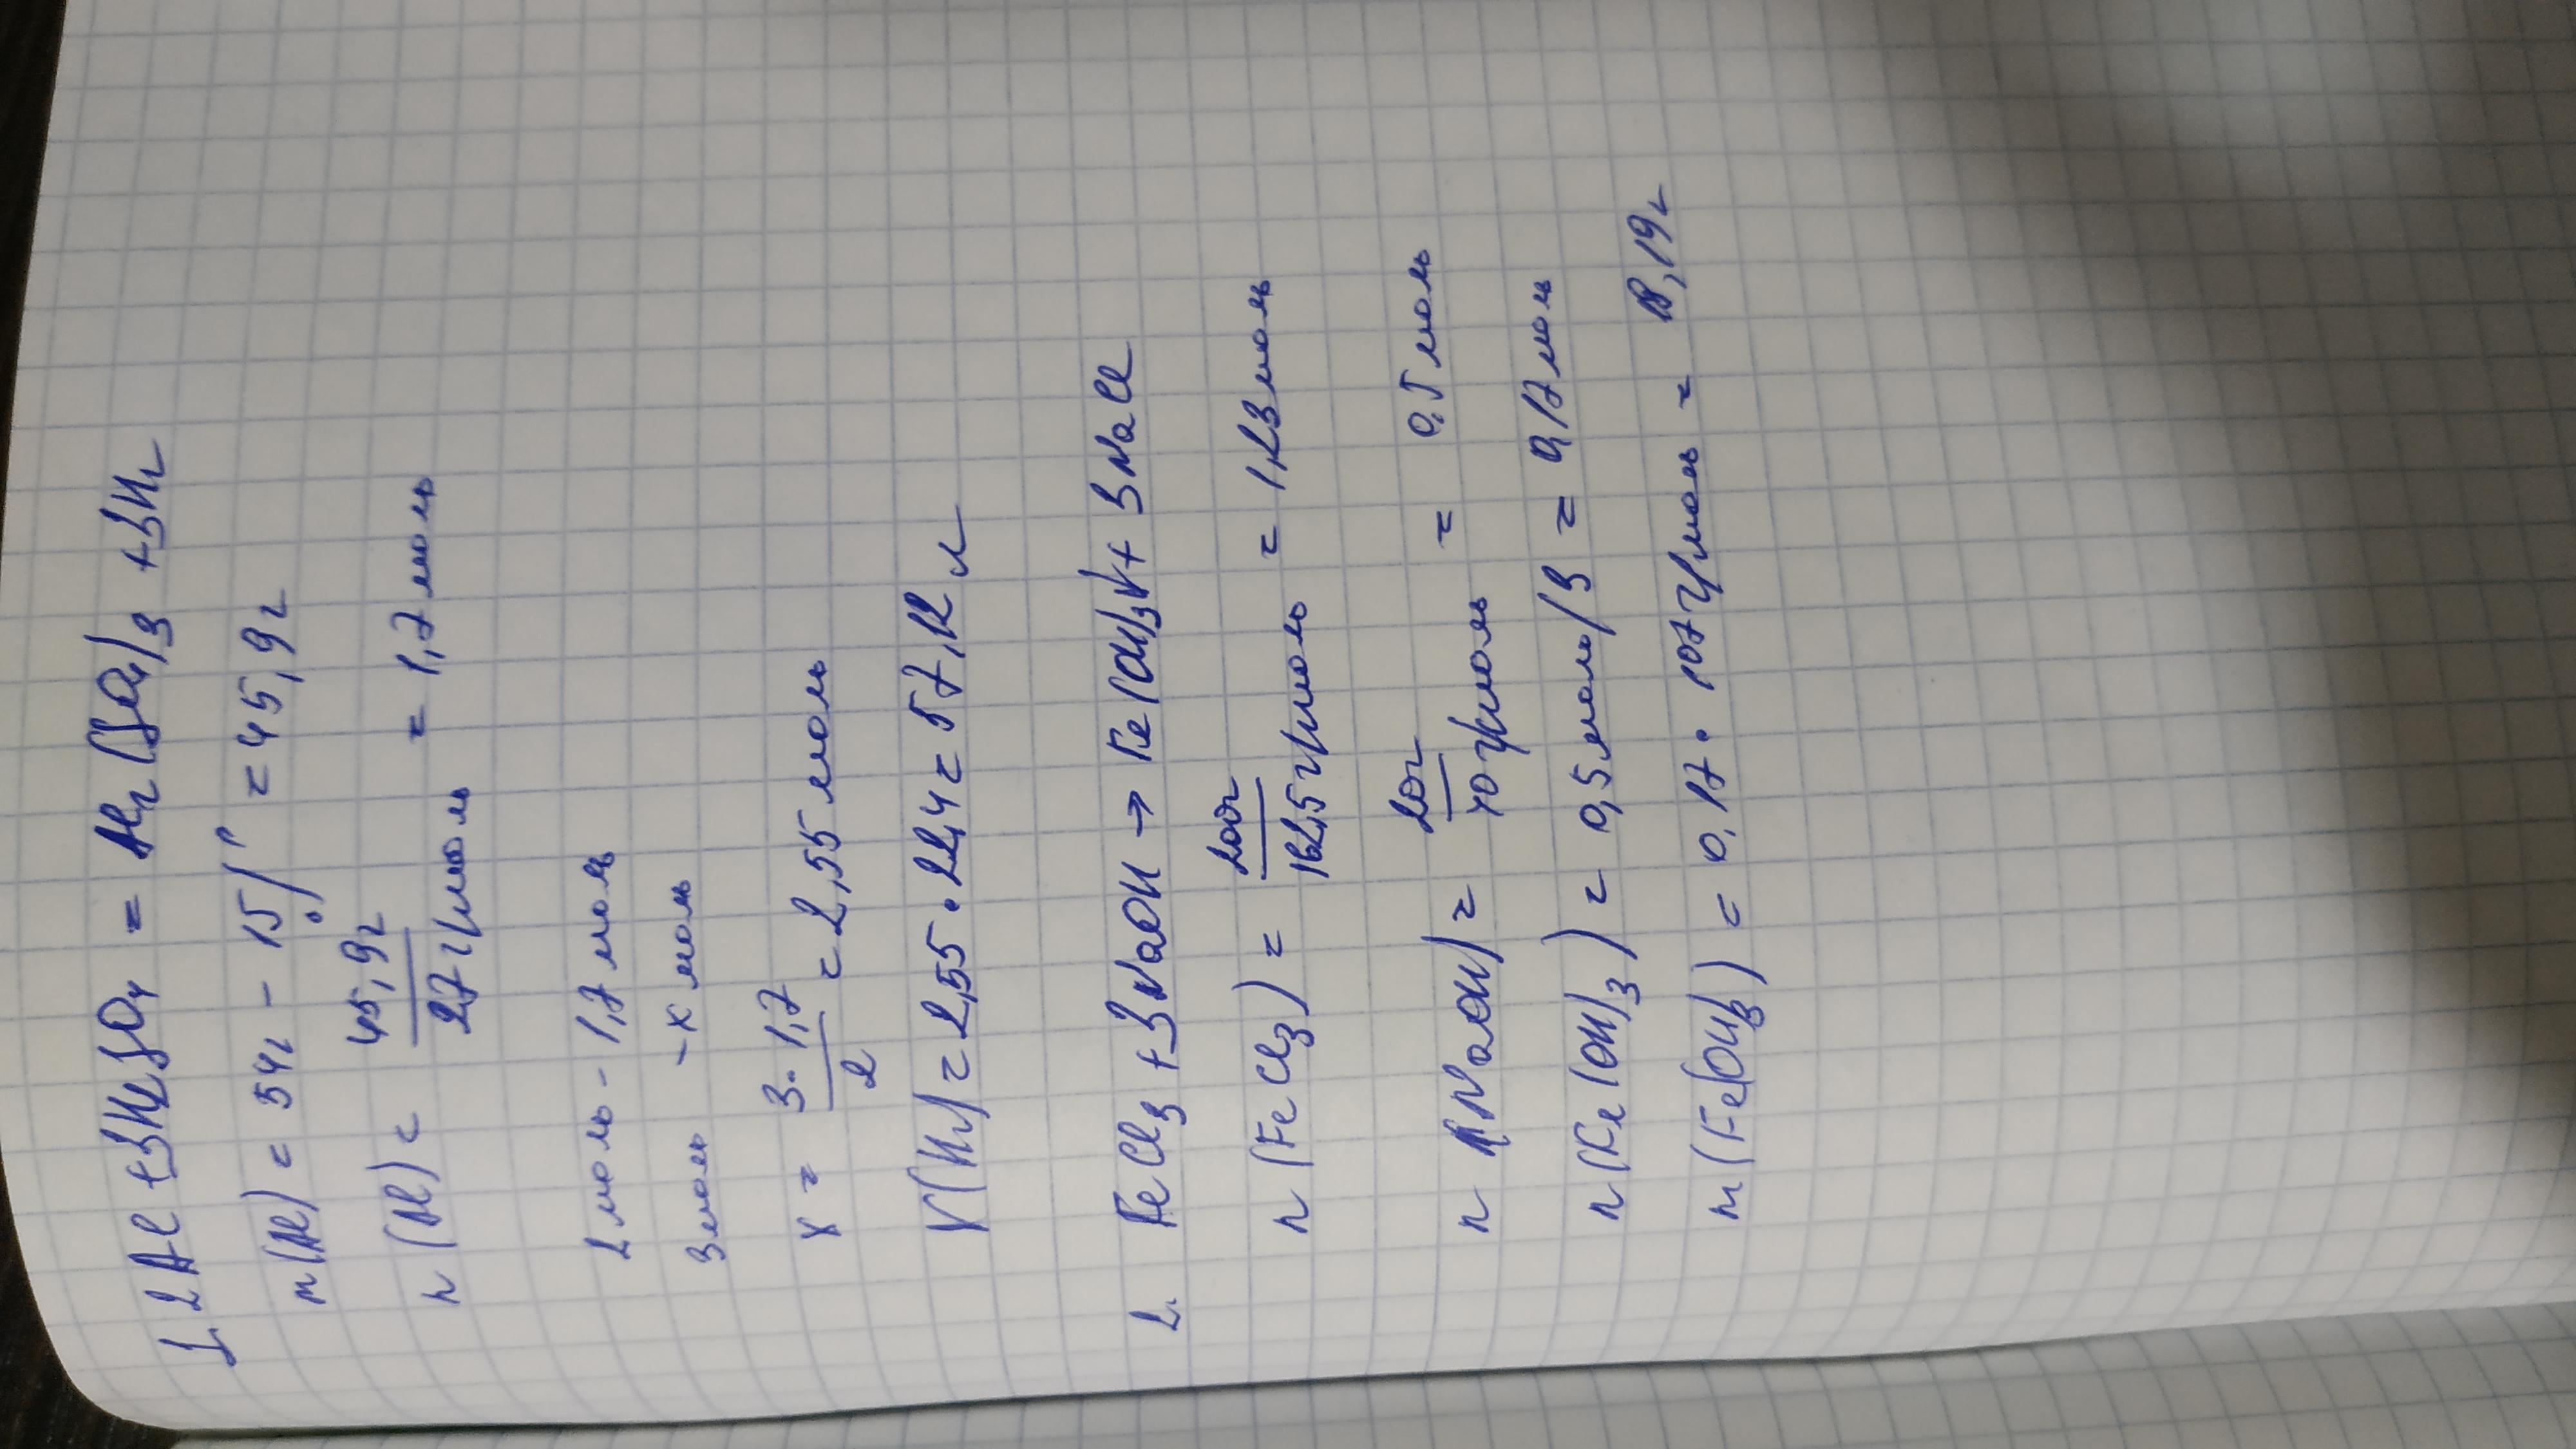 1. 2Al + 3H₂SO₄ = Al₂(SO₄)₃ + 3H₂
m(Al) = 54г - 15% = 45,9г
n(Al) = 45,9г / 27г/моль = 1,7 моль
2 моль - 1,7 моль
3 моль - x моль
x = 3·1,7 / 2 = 2,55 моль
V(H₂) = 2,55 · 22,4 = 57,12 л
2. FeCl₃ + 3NaOH → Fe(OH)₃↓ + 3NaCl
n(FeCl₃) = 200г / 162,5г/моль = 1,23 моль
n (NaOH) = 20г / 40г/моль = 0,5 моль
n(Fe(OH)₃) = 0,5 моль/3 = 0,17 моль
m(Fe(OH)₃) = 0,17 · 107г/моль = 18,19г